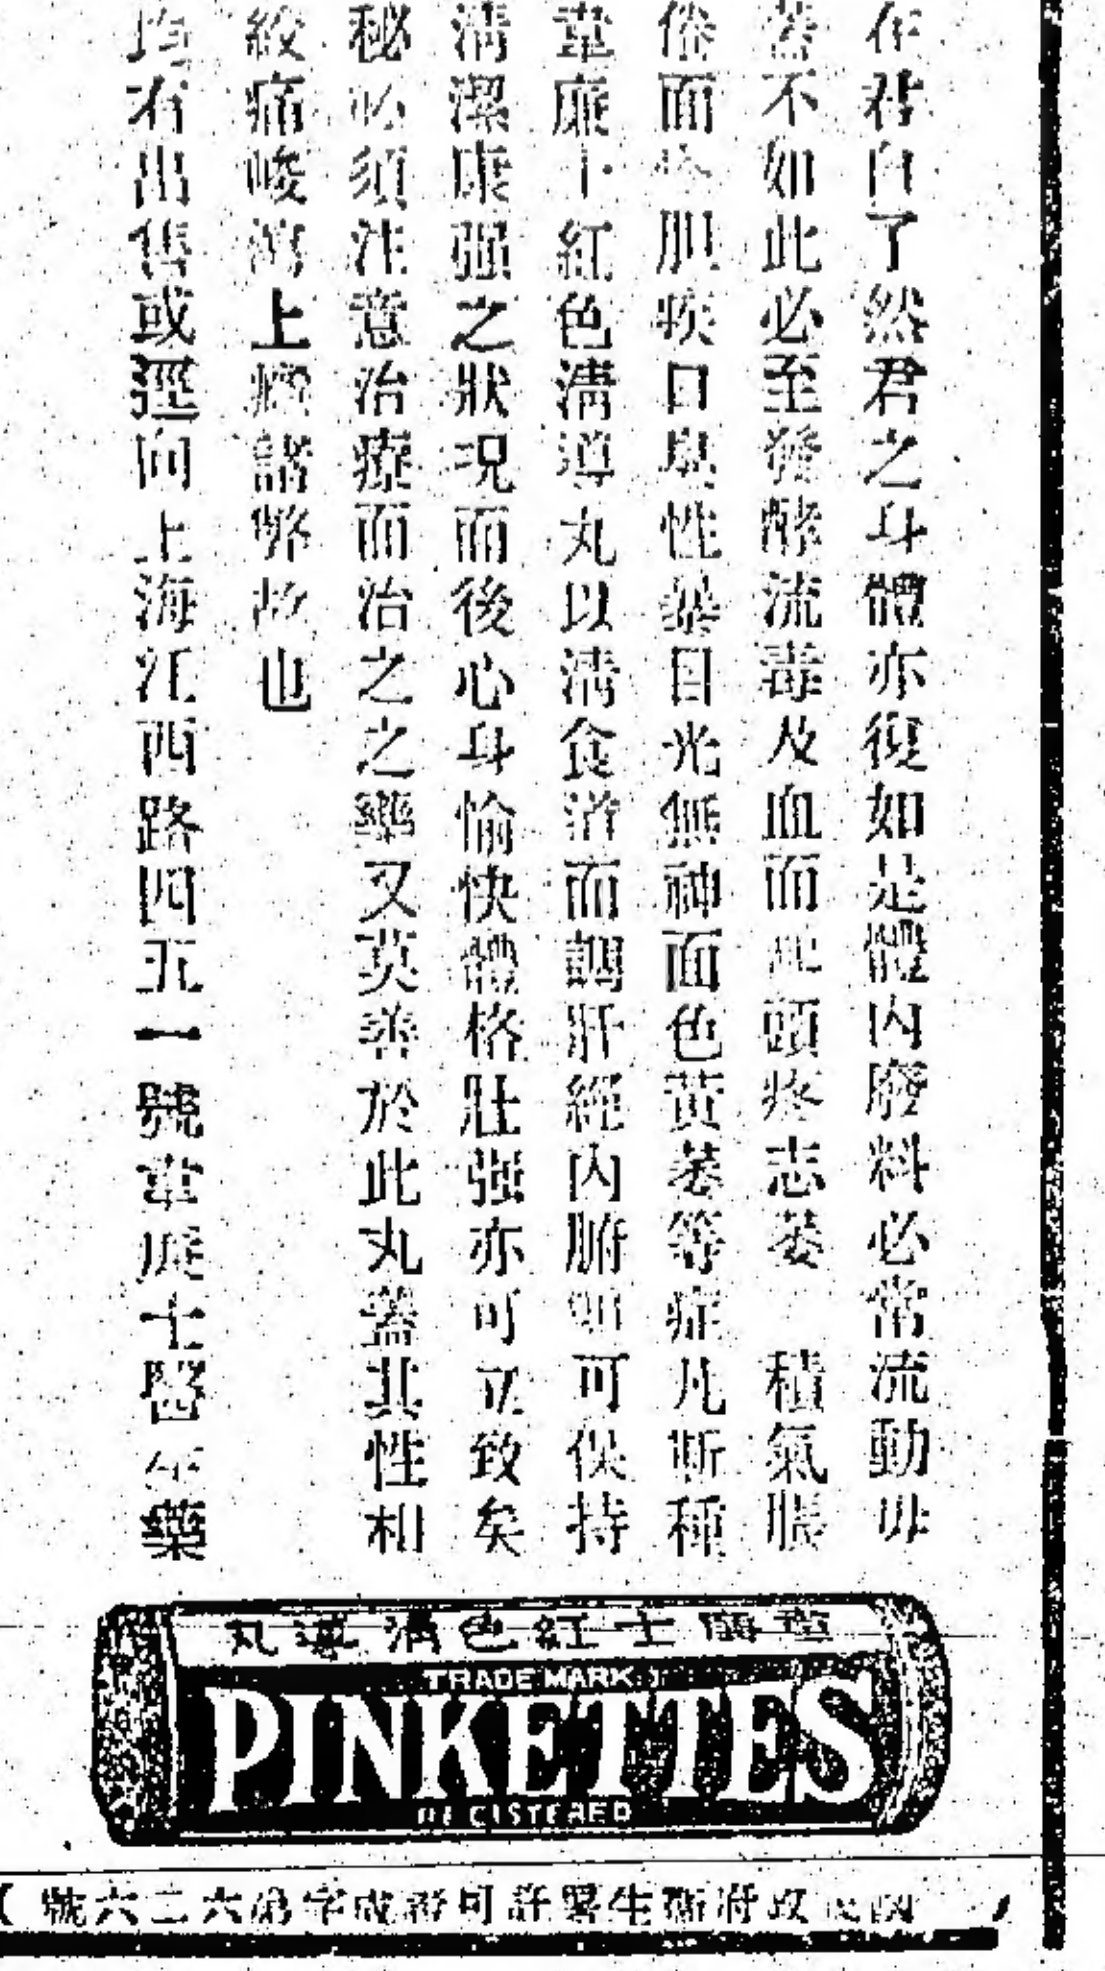 在君自了然君之身體亦復如是體内廢料必當流動毋
蓋不如此必至發酵流毒及血而起頭疼志萎 積氣脹
俗面疼胆疾口臭性暴目光無神面色黃萎等症凡斯種
韋廉士紅色清導丸以清食道而調肝經内腑如可保持
清潔康强之狀况而後心身愉快體格壯强亦可立致矣
秘必須注意治療而治之之藥又莫善於此丸蓋其性相
絞痛峻瀉上癮諸弊故也
均有出售或逕向上海江西路四五一號韋廉士醫生藥
韋廉士紅色清導丸
TRADE MARK
PINKETTES
REGISTERED
國民政府衛生署許可證成字第六二六號